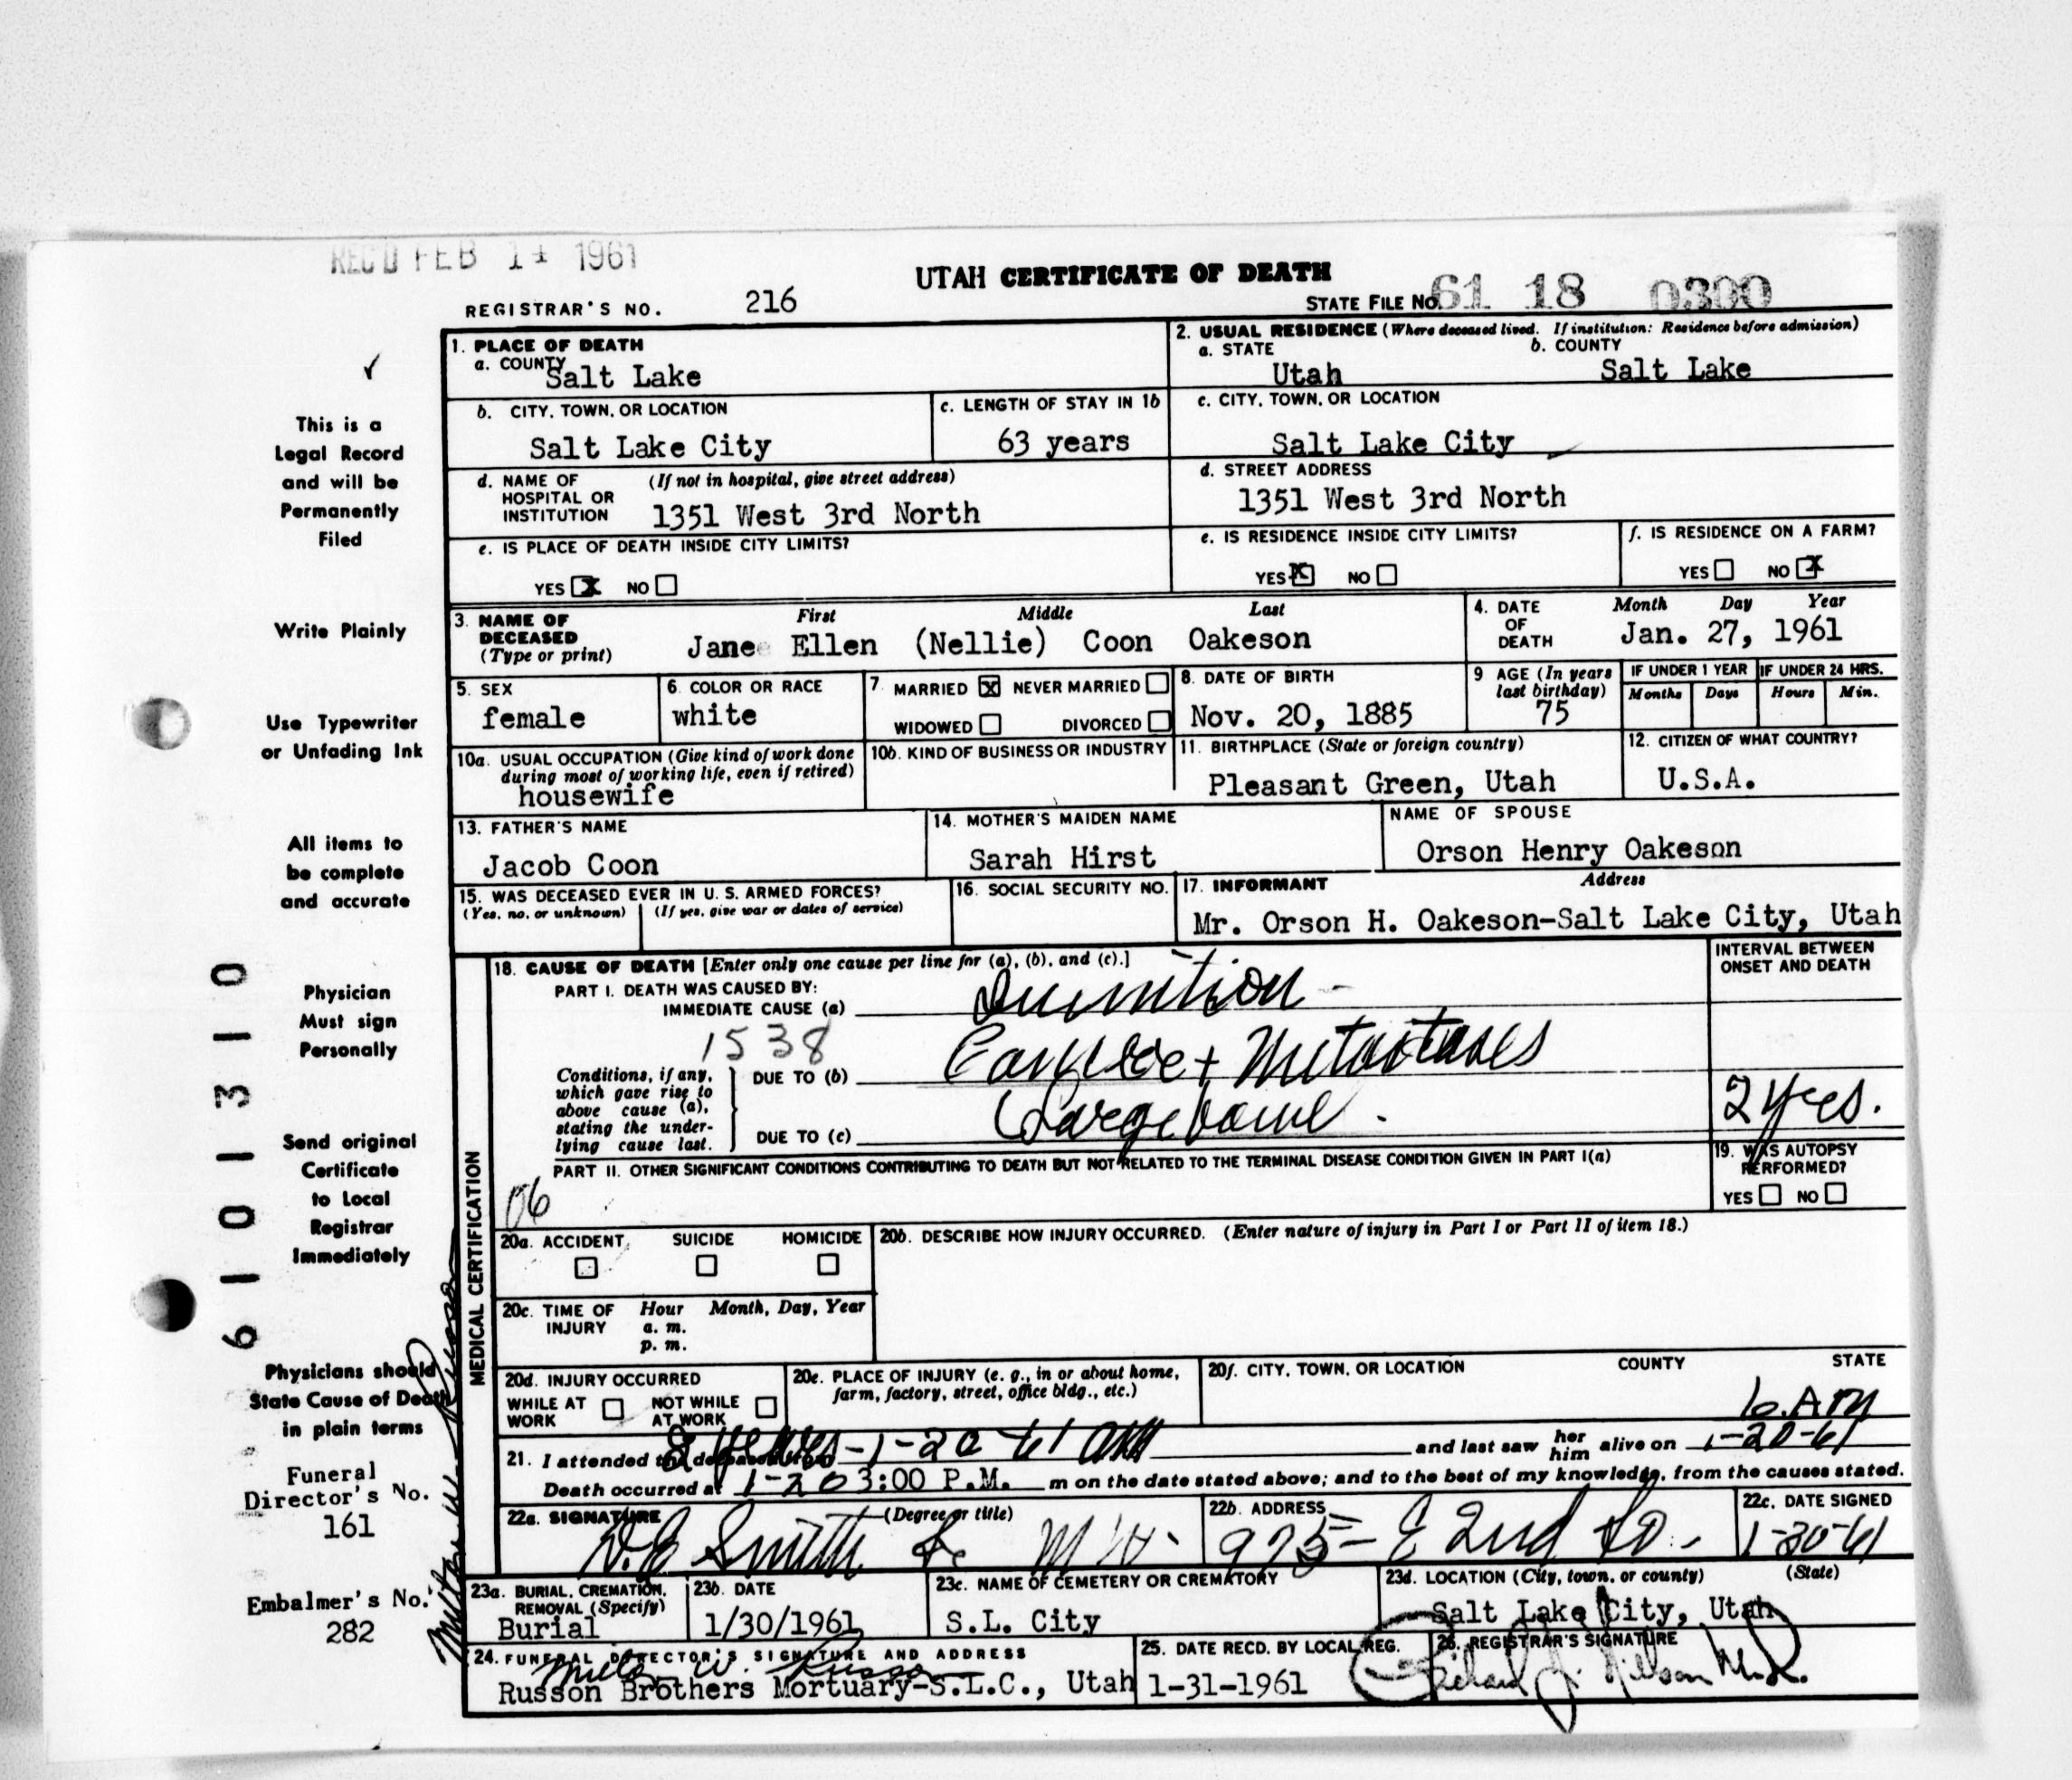 REC'D FEB 14 1961
UTAH CERTIFICATE OF DEATH
REGISTRAR'S NO. 216
STATE FILE NO. 61 18 0300
1. PLACE OF DEATH
a. COUNTY
Salt Lake
2. USUAL RESIDENCE (Where deceased lived. If institution: Residence before admission)
a. STATE b. COUNTY
Utah Salt Lake
b. CITY, TOWN, OR LOCATION
Salt Lake City
c. LENGTH OF STAY IN 1b
63 years
c. CITY, TOWN, OR LOCATION
Salt Lake City
d. NAME OF (If not in hospital, give street address)
HOSPITAL OR
INSTITUTION 1351 West 3rd North
d. STREET ADDRESS
1351 West 3rd North
e. IS PLACE OF DEATH INSIDE CITY LIMITS?
YES X NO
e. IS RESIDENCE INSIDE CITY LIMITS?
YES X NO
f. IS RESIDENCE ON A FARM?
YES NO X
3. NAME OF
DECEASED
(Type or print)
First Middle Last
Jane Ellen (Nellie) Coon Oakeson
4. DATE
OF
DEATH
Month Day Year
Jan. 27, 1961
5. SEX
female
6. COLOR OR RACE
white
7. MARRIED X NEVER MARRIED
WIDOWED DIVORCED
8. DATE OF BIRTH
Nov. 20, 1885
9 AGE (In years
last birthday)
75
IF UNDER 1 YEAR
Months Days
IF UNDER 24 HRS.
Hours Min.
10a. USUAL OCCUPATION (Give kind of work done
during most of working life, even if retired)
housewife
10b. KIND OF BUSINESS OR INDUSTRY
11. BIRTHPLACE (State or foreign country)
Pleasant Green, Utah
12. CITIZEN OF WHAT COUNTRY?
U.S.A.
13. FATHER'S NAME
Jacob Coon
14. MOTHER'S MAIDEN NAME
Sarah Hirst
NAME OF SPOUSE
Orson Henry Oakeson
15. WAS DECEASED EVER IN U. S. ARMED FORCES?
(Yes, no, or unknown) (If yes, give war or dates of service)
16. SOCIAL SECURITY NO.
17. INFORMANT Address
Mr. Orson H. Oakeson-Salt Lake City, Utah
MEDICAL CERTIFICATION
18. CAUSE OF DEATH [Enter only one cause per line for (a), (b), and (c).]
PART I. DEATH WAS CAUSED BY:
IMMEDIATE CAUSE (a)
1538
Conditions, if any,
which gave rise to
above cause (a),
stating the under-
lying cause last.
DUE TO (b) Metastases
DUE TO (c) Large bowel
INTERVAL BETWEEN
ONSET AND DEATH
2 yrs.
PART II. OTHER SIGNIFICANT CONDITIONS CONTRIBUTING TO DEATH BUT NOT RELATED TO THE TERMINAL DISEASE CONDITION GIVEN IN PART I(a)
06
19. WAS AUTOPSY
PERFORMED?
YES NO
20a. ACCIDENT SUICIDE HOMICIDE
20b. DESCRIBE HOW INJURY OCCURRED. (Enter nature of injury in Part I or Part II of item 18.)
20c. TIME OF
INJURY
Hour Month, Day, Year
a. m.
p. m.
20d. INJURY OCCURRED
WHILE AT
WORK
NOT WHILE
AT WORK
20e. PLACE OF INJURY (e. g., in or about home,
farm, factory, street, office bldg., etc.)
20f. CITY, TOWN, OR LOCATION COUNTY STATE
21. I attended the deceased 2 years - 1-20-61 and last saw her him alive on 1-20-61
Death occurred at 1-20 3:00 P.M. m on the date stated above; and to the best of my knowledge, from the causes stated.
22a. SIGNATURE (Degree or title)
Smith
22b. ADDRESS
975 - E 2nd So.
22c. DATE SIGNED
1-30-61
23a. BURIAL, CREMATION,
REMOVAL (Specify)
Burial
23b. DATE
1/30/1961
23c. NAME OF CEMETERY OR CREMATORY
S.L. City
23d. LOCATION (City, town, or county) (State)
Salt Lake City, Utah
24. FUNERAL DIRECTOR'S SIGNATURE AND ADDRESS
Milton W. Russon
Russon Brothers Mortuary-S.L.C., Utah
25. DATE RECD. BY LOCAL REG.
1-31-1961
26. REGISTRAR'S SIGNATURE
This is a
Legal Record
and will be
Permanently
Filed
Write Plainly
Use Typewriter
or Unfading Ink
All items to
be complete
and accurate
Physician
Must sign
Personally
Send original
Certificate
to Local
Registrar
Immediately
Physicians should
State Cause of Death
in plain terms
Funeral
Director's No.
161
Embalmer's No.
282
Milton W. Russon
6101310